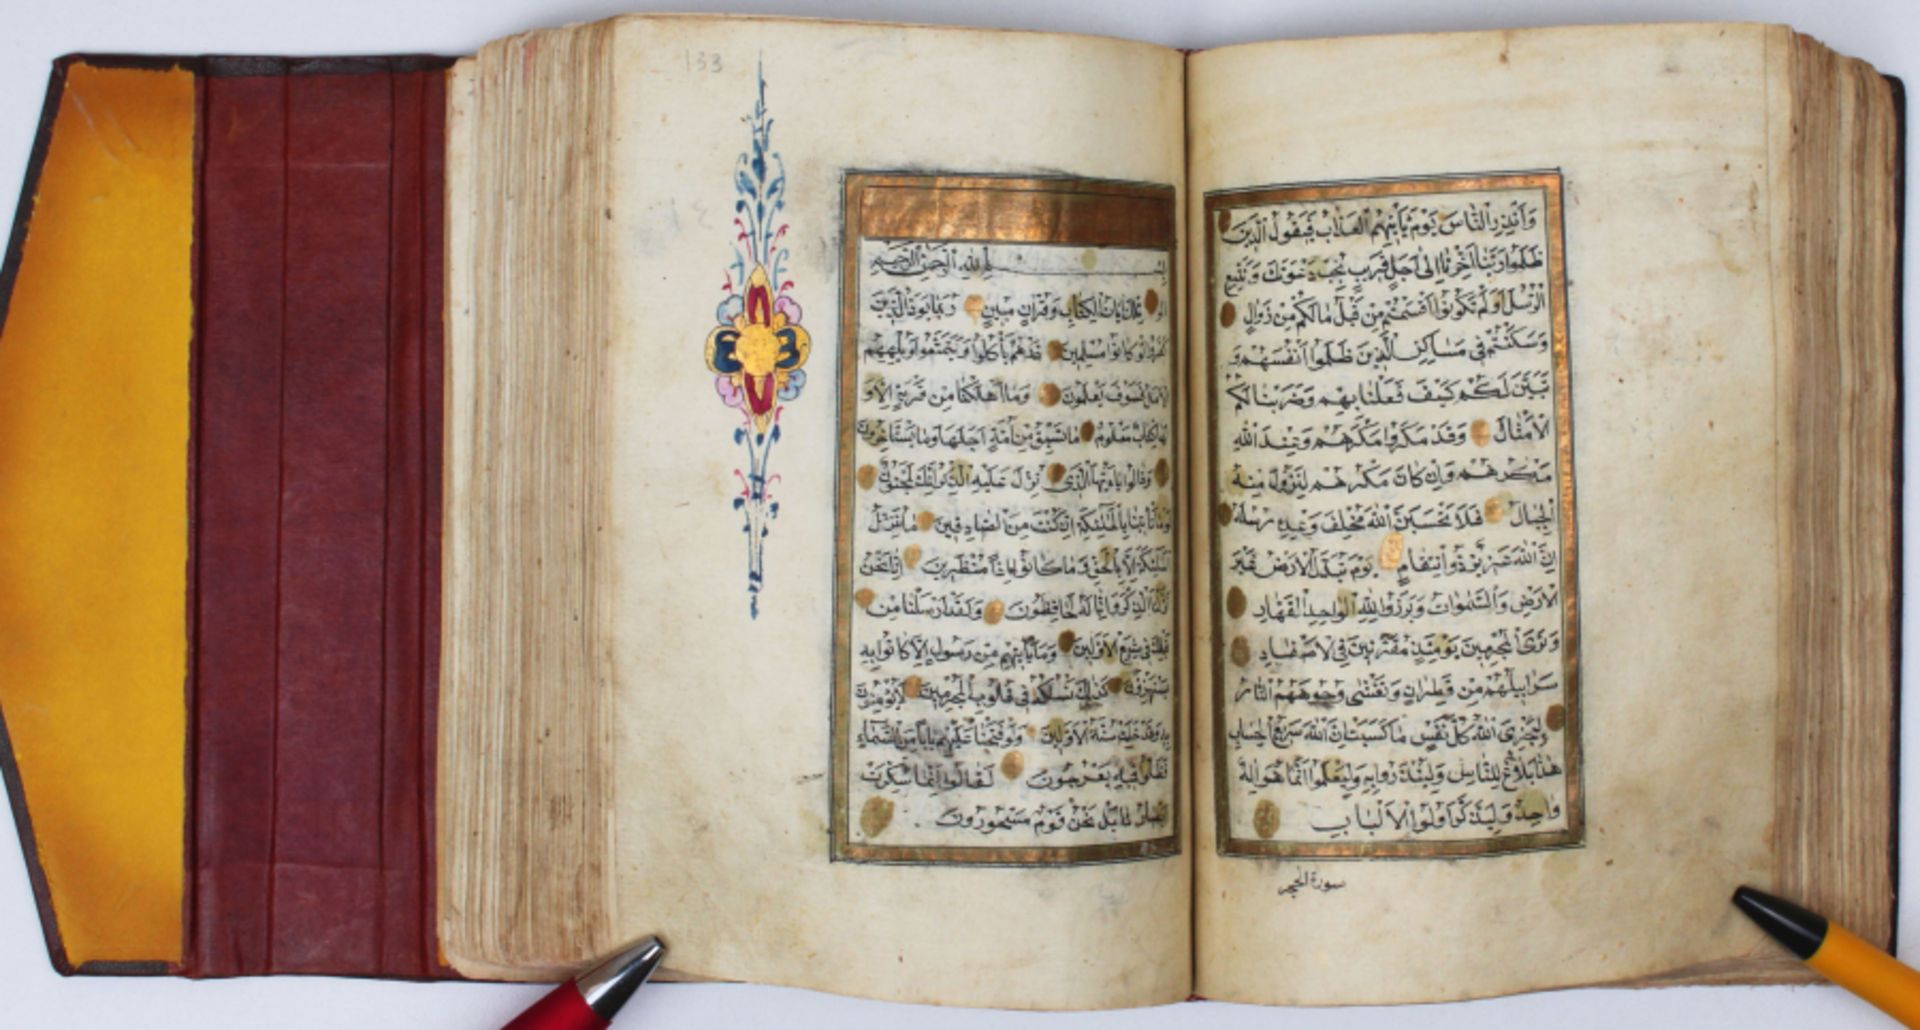 وَأَنْذِرِ النَّاسَ يَوْمَ يَأْتِيهِمُ الْعَذَابُ فَيَقُولُ الَّذِينَ
ظَلَمُوا رَبَّنَا أَخِّرْنَا إِلَى أَجَلٍ قَرِيبٍ نُجِبْ دَعْوَتَكَ وَنَتَّبِعِ
الرُّسُلَ أَوَلَمْ تَكُونُوا أَقْسَمْتُمْ مِنْ قَبْلُ مَا لَكُمْ مِنْ زَوَالٍ
وَسَكَنْتُمْ فِي مَسَاكِنِ الَّذِينَ ظَلَمُوا أَنْفُسَهُمْ وَ
تَبَيَّنَ لَكُمْ كَيْفَ فَعَلْنَا بِهِمْ وَضَرَبْنَا لَكُمُ
الْأَمْثَالَ وَقَدْ مَكَرُوا مَكْرَهُمْ وَعِنْدَ اللَّهِ
مَكْرُهُمْ وَإِنْ كَانَ مَكْرُهُمْ لِتَزُولَ مِنْهُ
الْجِبَالُ فَلَا تَحْسَبَنَّ اللَّهَ مُخْلِفَ وَعْدِهِ رُسُلَهُ
إِنَّ اللَّهَ عَزِيزٌ ذُو انْتِقَامٍ يَوْمَ تُبَدَّلُ الْأَرْضُ غَيْرَ
الْأَرْضِ وَالسَّمٰوَاتُ وَبَرَزُوا لِلَّهِ الْوَاحِدِ الْقَهَّارِ
وَتَرَى الْمُجْرِمِينَ يَوْمَئِذٍ مُقَرَّنِينَ فِي الْأَصْفَادِ
سَرَابِيلُهُمْ مِنْ قَطِرَانٍ وَتَغْشَى وُجُوهَهُمُ النَّارُ
لِيَجْزِيَ اللَّهُ كُلَّ نَفْسٍ مَا كَسَبَتْ إِنَّ اللَّهَ سَرِيعُ الْحِسَابِ
هٰذَا بَلَاغٌ لِلنَّاسِ وَلِيُنْذَرُوا بِهِ وَلِيَعْلَمُوا أَنَّمَا هُوَ إِلٰهٌ
وَاحِدٌ وَلِيَذَّكَّرَ أُولُوا الْأَلْبَابِ
سورة الحجر
133
بِسْمِ اللَّهِ الرَّحْمٰنِ الرَّحِيمِ
الر تِلْكَ آيَاتُ الْكِتَابِ وَقُرْآنٍ مُبِينٍ رُبَمَا يَوَدُّ الَّذِينَ
كَفَرُوا لَوْ كَانُوا مُسْلِمِينَ ذَرْهُمْ يَأْكُلُوا وَيَتَمَتَّعُوا وَيُلْهِهِمُ
الْأَمَلُ فَسَوْفَ يَعْلَمُونَ وَمَا أَهْلَكْنَا مِنْ قَرْيَةٍ إِلَّا وَ
لَهَا كِتَابٌ مَعْلُومٌ مَا تَسْبِقُ مِنْ أُمَّةٍ أَجَلَهَا وَمَا يَسْتَأْخِرُونَ
وَقَالُوا يَا أَيُّهَا الَّذِي نُزِّلَ عَلَيْهِ الذِّكْرُ إِنَّكَ لَمَجْنُونٌ
لَوْ مَا تَأْتِينَا بِالْمَلٰئِكَةِ إِنْ كُنْتَ مِنَ الصَّادِقِينَ مَا نُنَزِّلُ
الْمَلٰئِكَةَ إِلَّا بِالْحَقِّ وَمَا كَانُوا إِذًا مُنْظَرِينَ إِنَّا نَحْنُ
نَزَّلْنَا الذِّكْرَ وَإِنَّا لَهُ لَحَافِظُونَ وَلَقَدْ أَرْسَلْنَا مِنْ
قَبْلِكَ فِي شِيَعِ الْأَوَّلِينَ وَمَا يَأْتِيهِمْ مِنْ رَسُولٍ إِلَّا كَانُوا بِهِ
يَسْتَهْزِؤُنَ كَذٰلِكَ نَسْلُكُهُ فِي قُلُوبِ الْمُجْرِمِينَ لَا يُؤْمِنُونَ
بِهِ وَقَدْ خَلَتْ سُنَّةُ الْأَوَّلِينَ وَلَوْ فَتَحْنَا عَلَيْهِمْ بَابًا مِنَ السَّمَاءِ
فَظَلُّوا فِيهِ يَعْرُجُونَ لَقَالُوا إِنَّمَا سُكِّرَتْ
أَبْصَارُنَا بَلْ نَحْنُ قَوْمٌ مَسْحُورُونَ